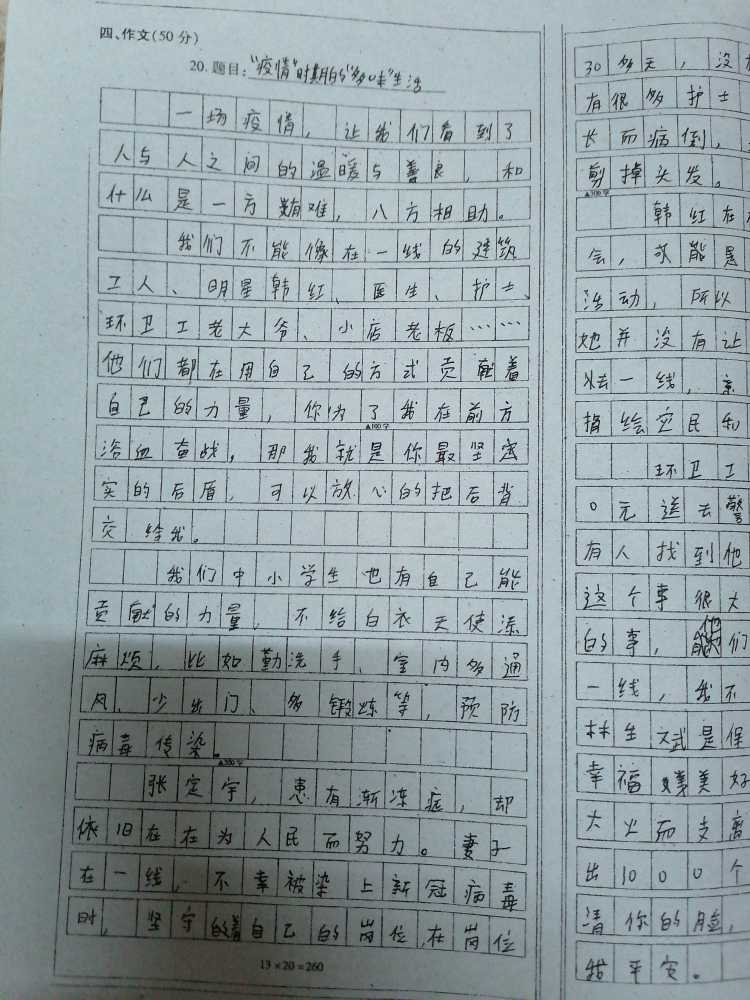 四、作文(50分)
20.题目:"疫情"时期的"多味"生活
一场疫情，让我们看到了
人与人之间的温暖与善良，和
什么是一方有难，八方相助。
我们不能像在一线的建筑
工人、明星韩红、医生、护士、
环卫工老大爷、小店老板……
他们都在用自己的方式贡献着
自己的力量，你为了我在前方
浴血奋战，那我就是你最坚
实的后盾，可以放心的把后背
交给我。
▲100字
我们中小学生也有自己能
贡献的力量，不给白衣天使添
麻烦，比如勤洗手、室内多通
风、少出门、多锻炼等，预防
病毒传染。
▲200字
张定宇，患有渐冻症，却
依旧在在为人民而努力。妻子
在一线，不幸被染上新冠病毒
时，坚守着自己的岗位，在岗位
13×20=260
30多元，没
有很多护士
长而病倒，
剪掉头发。
▲300字
韩红在
会，可能是
活动，所以
她并没有让
去一线，亲
捐给灾民和
环卫工
0元送去警
有人找到他
这个事很大
的事，他们
一线，我不
林生斌是保
幸福美好
大火而支离
出1000个
清你的脸，
我平安。